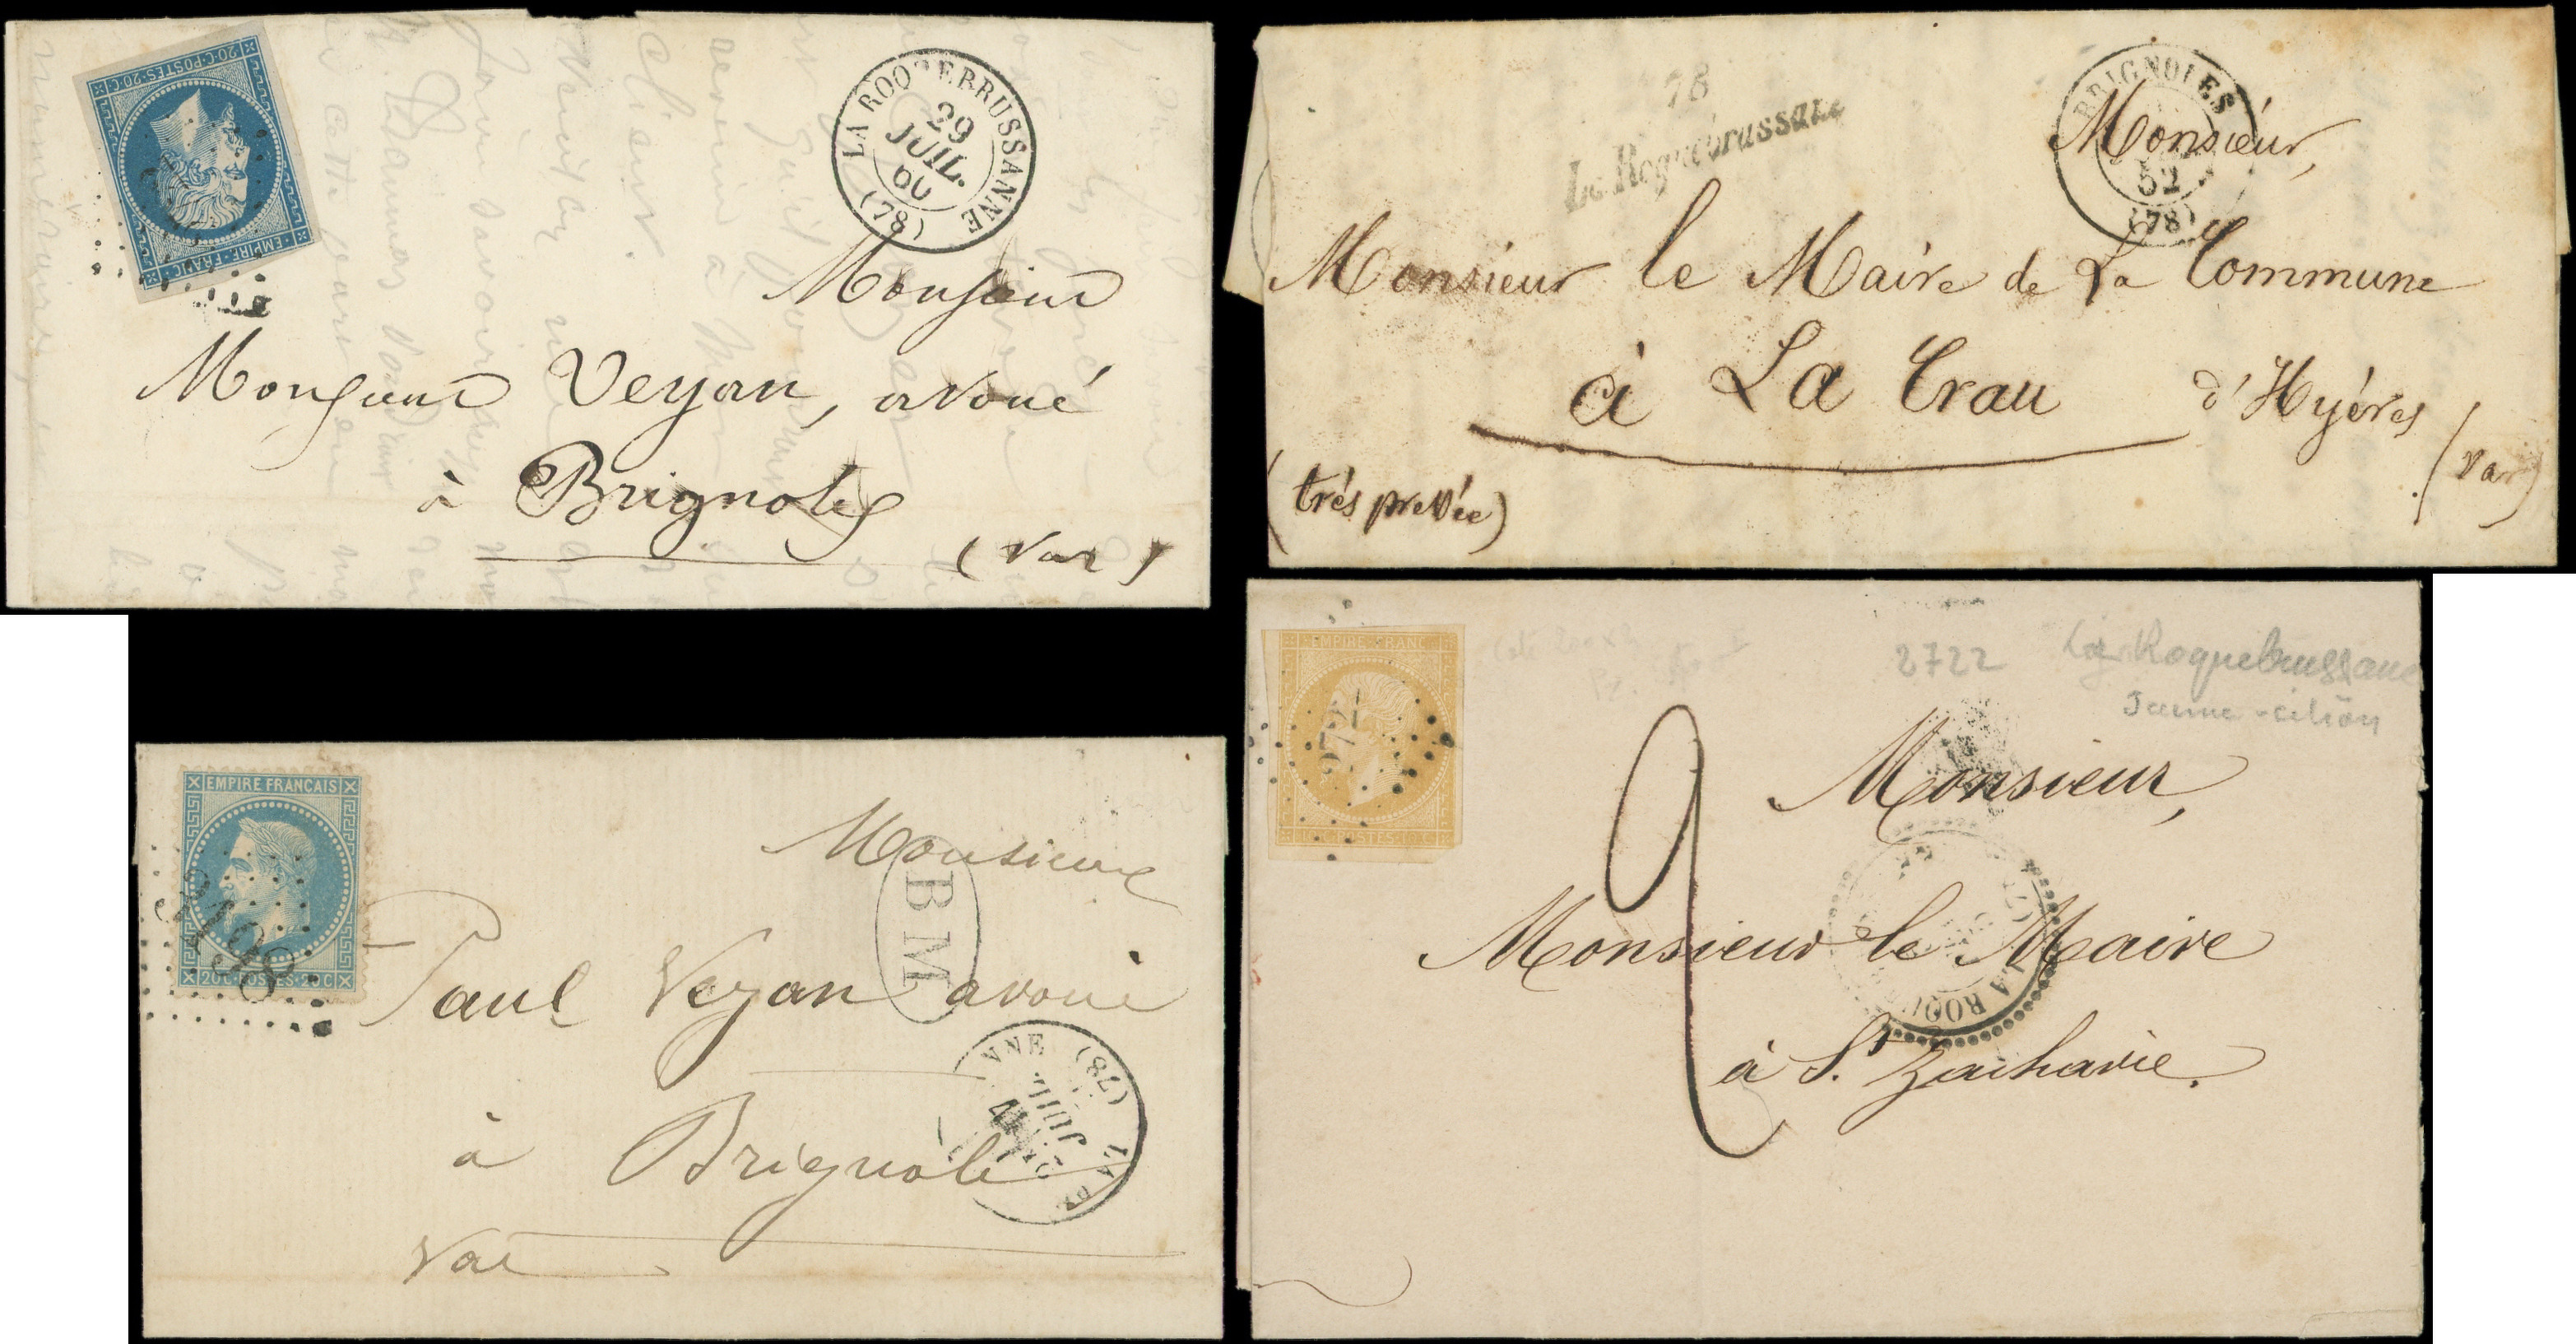 20·C·POSTES·20·C
EMPIRE·FRANC·
LA ROQUEBRUSSANNE
29
JUIL.
60
(78)
Monsieur
Monsieur Veyan, avoué
à Brignoles
(Var)
78
La Roquebrussane
BRIGNOLES
52
(78)
Monsieur,
Monsieur le Maire de La Commune
à La Crau d'Hyéres
(Var)
(très pressée)
EMPIRE FRANÇAIS
20C·POSTES·20C
Monsieur
BM
Paul Veyan avoué
NNE (78) LA R
JUIL.
à Brignole
Var
EMPIRE·FRANC·
10·C·POSTES·10·C
2722
2722 La Roquebrussane
Jaune-citron
2
Monsieur,
Monsieur le Maire
LA ROQU
à St. Zacharie.